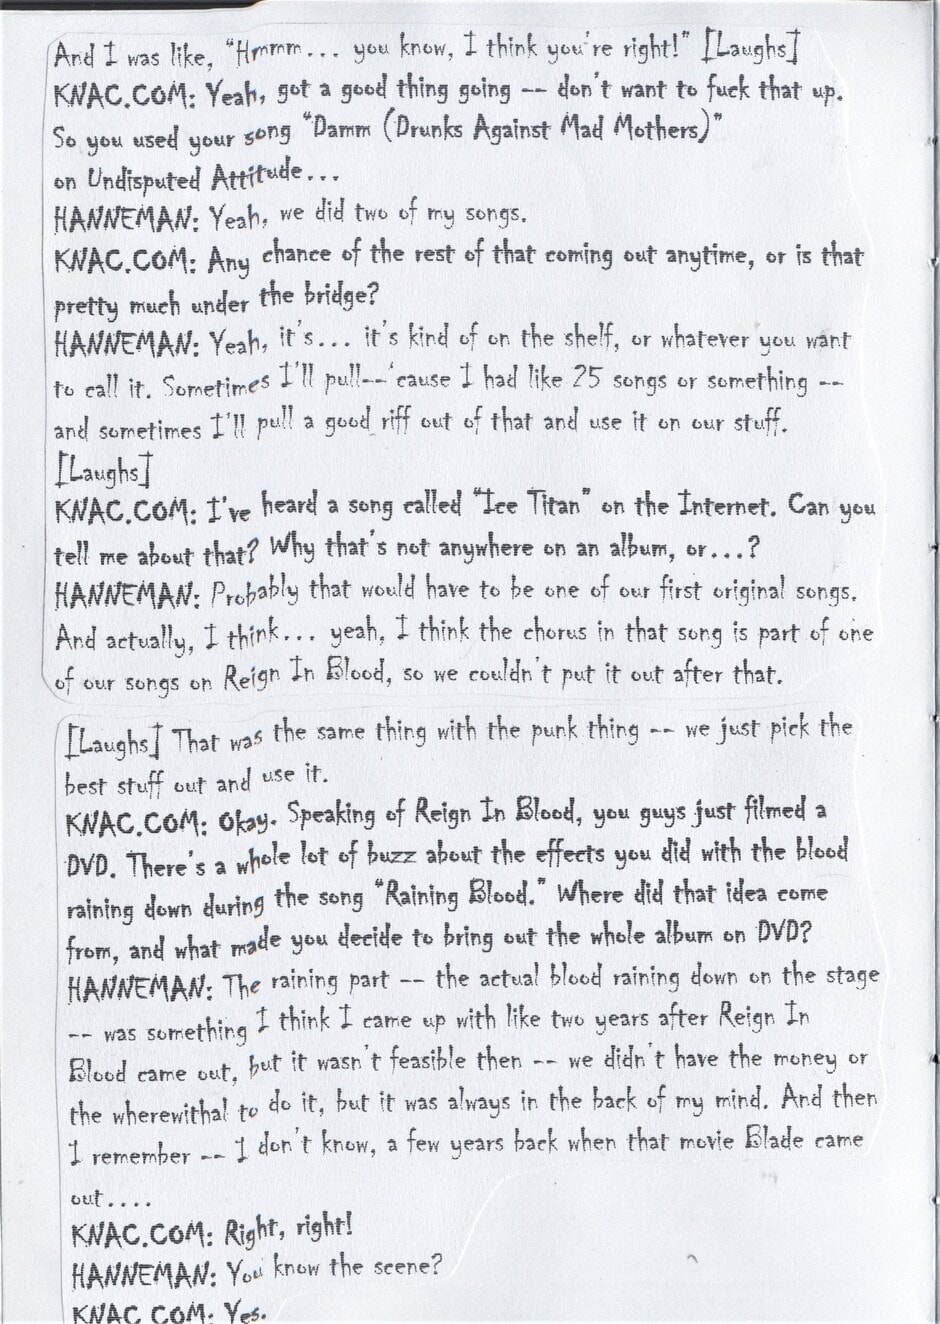 And I was like, "Hmmm... you know, I think you're right!" [Laughs]
KNAC.COM: Yeah, got a good thing going -- don't want to fuck that up.
So you used your song "Damm (Drunks Against Mad Mothers)"
on Undisputed Attitude...
HANNEMAN: Yeah, we did two of my songs.
KNAC.COM: Any chance of the rest of that coming out anytime, or is that
pretty much under the bridge?
HANNEMAN: Yeah, it's... it's kind of on the shelf, or whatever you want
to call it. Sometimes I'll pull--'cause I had like 25 songs or something --
and sometimes I'll pull a good riff out of that and use it on our stuff.
[Laughs]
KNAC.COM: I've heard a song called "Ice Titan" on the Internet. Can you
tell me about that? Why that's not anywhere on an album, or...?
HANNEMAN: Probably that would have to be one of our first original songs.
And actually, I think... yeah, I think the chorus in that song is part of one
of our songs on Reign In Blood, so we couldn't put it out after that.
[Laughs] That was the same thing with the punk thing -- we just pick the
best stuff out and use it.
KNAC.COM: Okay. Speaking of Reign In Blood, you guys just filmed a
DVD. There's a whole lot of buzz about the effects you did with the blood
raining down during the song "Raining Blood." Where did that idea come
from, and what made you decide to bring out the whole album on DVD?
HANNEMAN: The raining part -- the actual blood raining down on the stage
-- was something I think I came up with like two years after Reign In
Blood came out, but it wasn't feasible then -- we didn't have the money or
the wherewithal to do it, but it was always in the back of my mind. And then
I remember -- I don't know, a few years back when that movie Blade came
out....
KNAC.COM: Right, right!
HANNEMAN: You know the scene?
KNAC.COM: Yes.